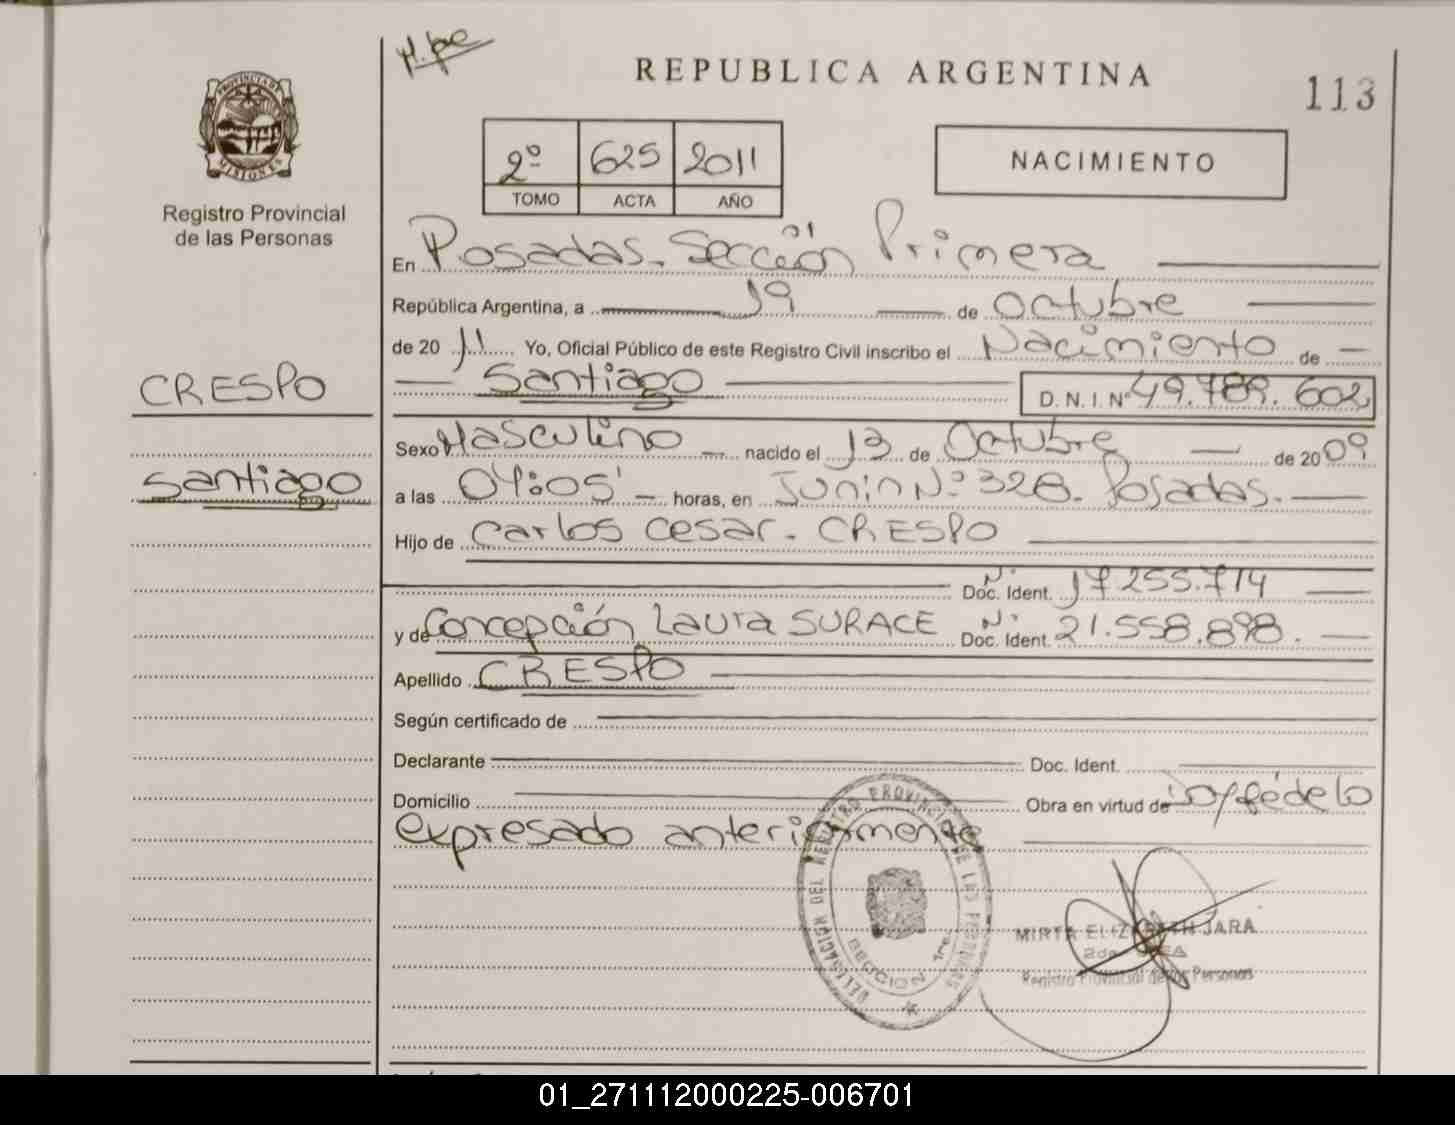 REPUBLICA ARGENTINA
113
PROVINCIA DE MISIONES
Registro Provincial
de las Personas
2º 625 2011
TOMO ACTA AÑO
NACIMIENTO
En Posadas. Sección Primera
República Argentina, a 19 de Octubre
de 20 11 Yo, Oficial Público de este Registro Civil inscribo el Nacimiento de
Santiago D. N. I. Nº 49.789.602
CRESPO
Santiago
Sexo Masculino nacido el 13 de Octubre de 20 09
a las horas, en Junin Nº 328. Posadas.
Hijo de Carlos Cesar. CRESPO
Doc. Ident. Nº 17.255.714
y de Concepción Laura SURACE Doc. Ident. Nº 21.558.898.
Apellido CRESPO
Según certificado de
Declarante Doc. Ident.
Domicilio Obra en virtud de
expresado anteriormente
DELEGACION DEL REGISTRO PROVINCIAL DE LAS PERSONAS
SECCION 1ra.
MIRTA ELIZABETH JARA
Registro Provincial de las Personas
01_271112000225-006701